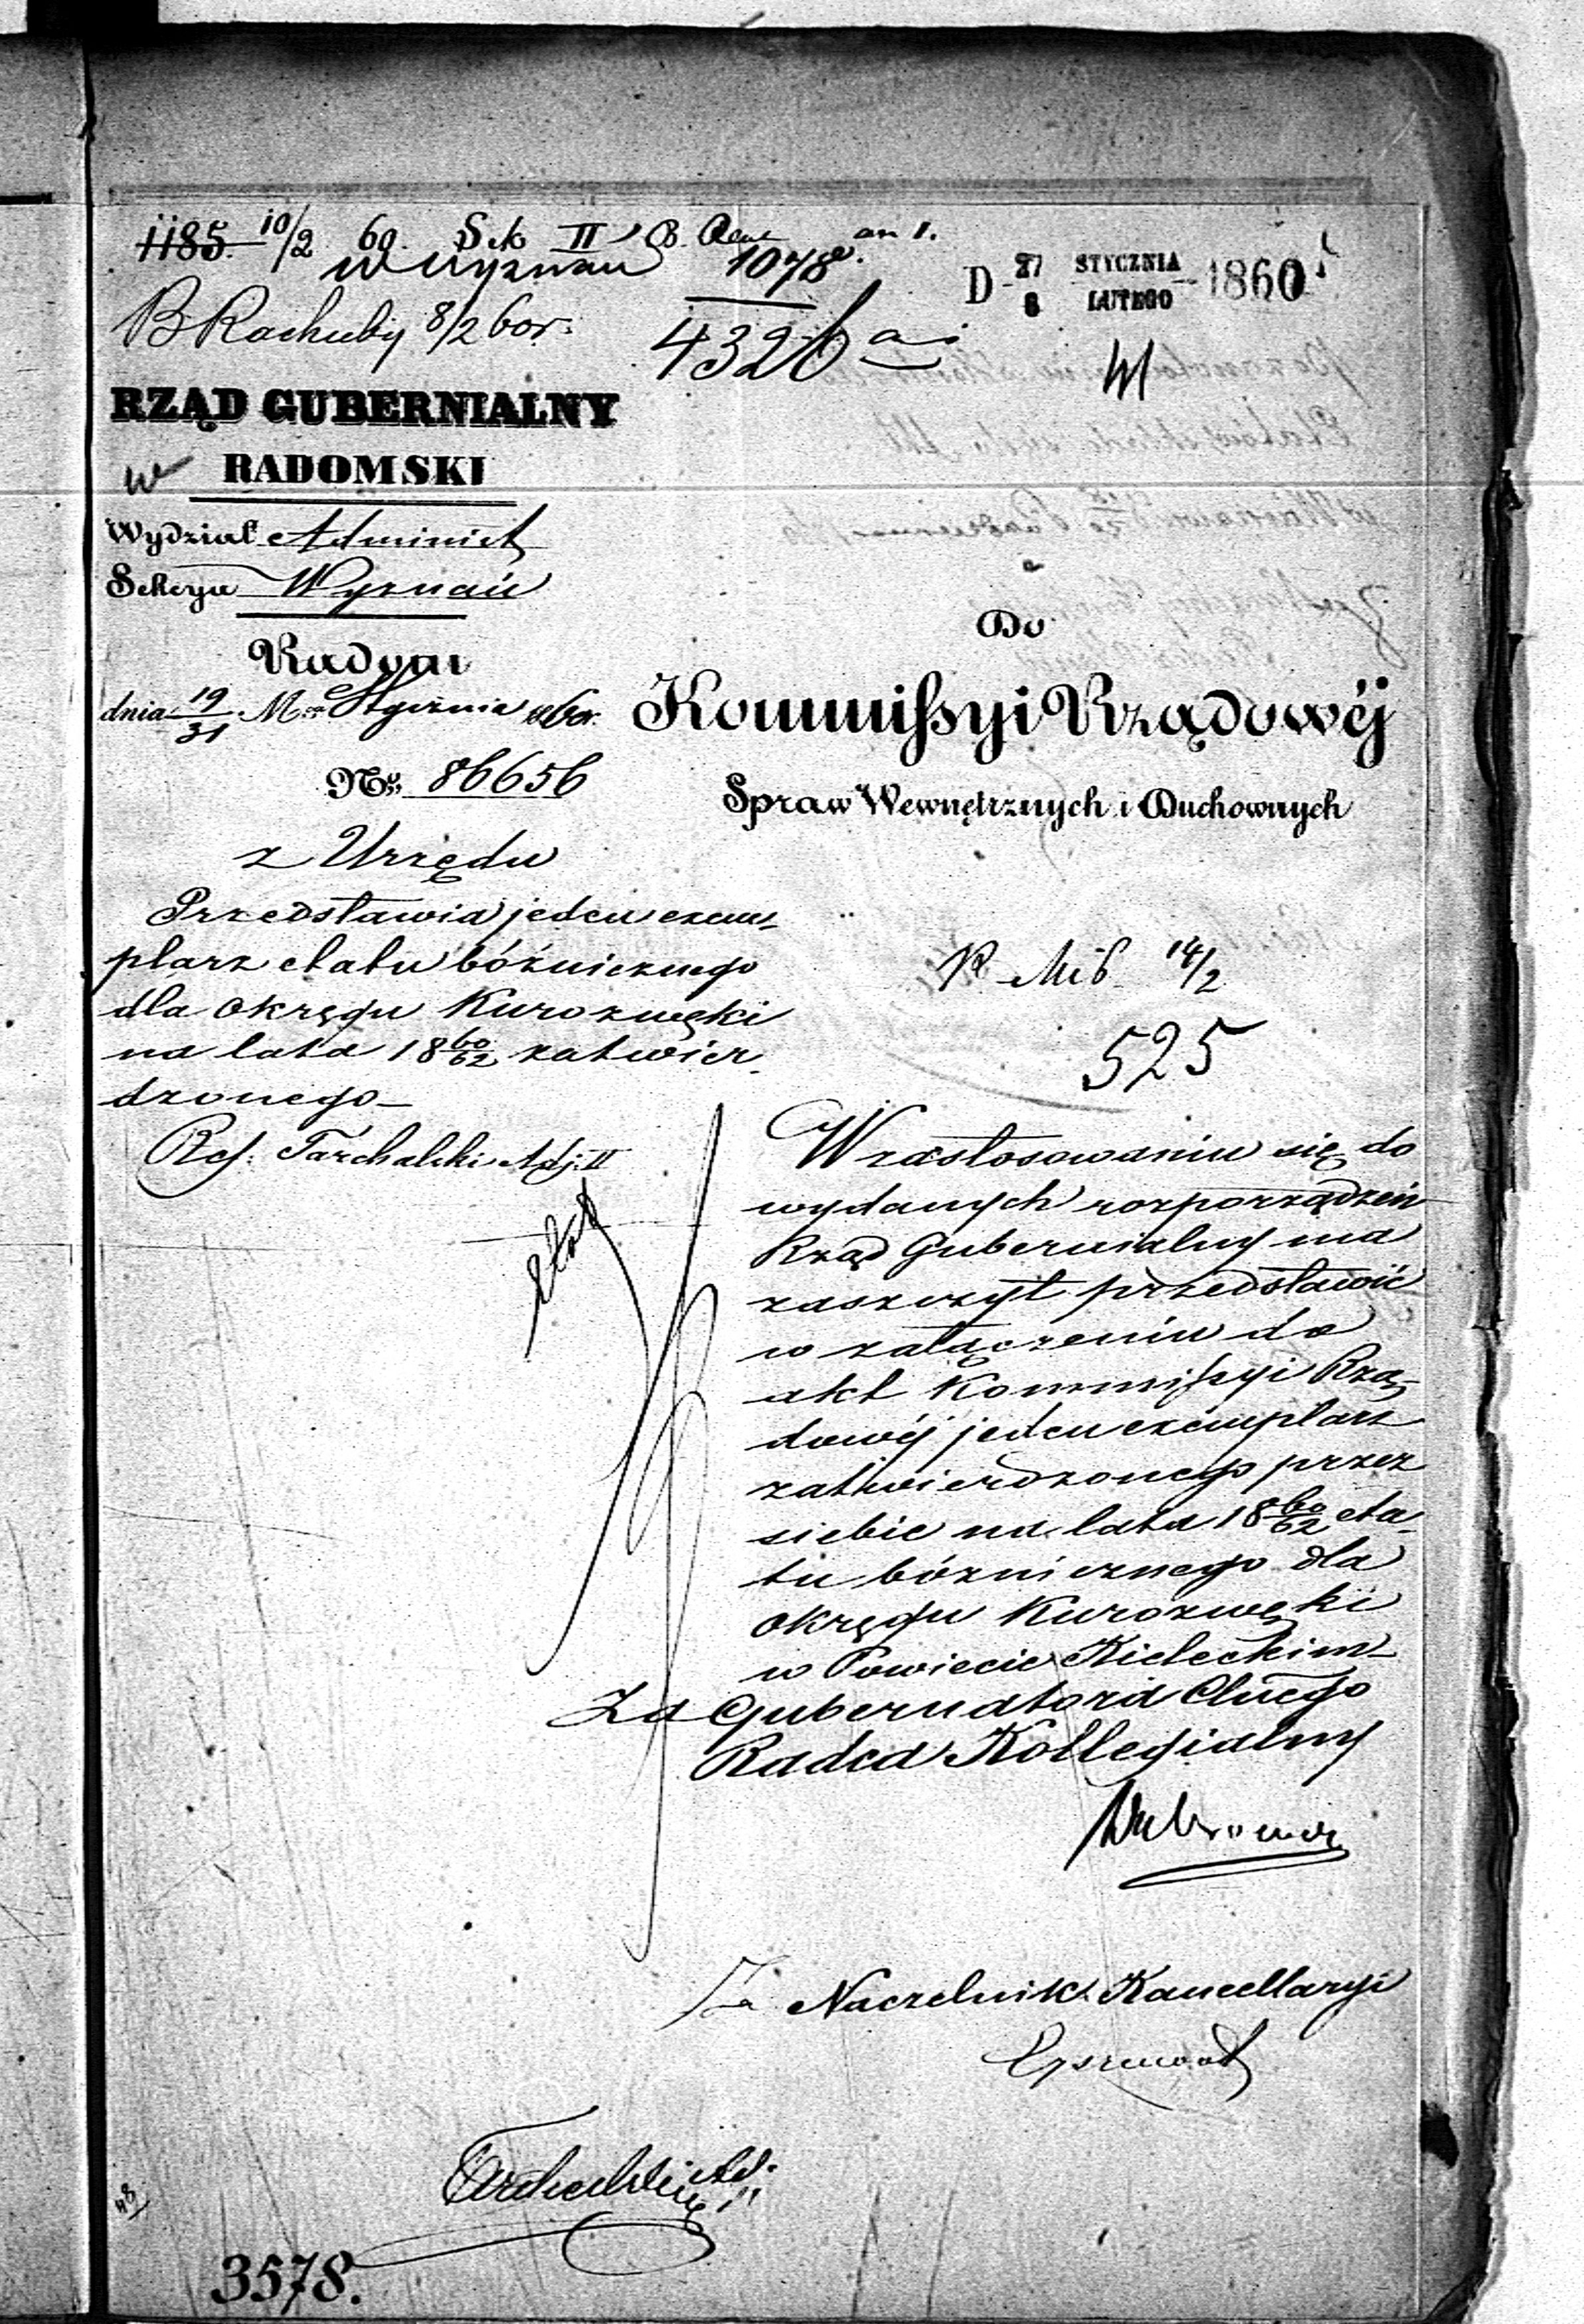 1185. 10/2 60. Sek II B.
W Wyznań 1078
B Rachuby 8/2 60r.
4326
D 27 STYCZNIA 1860
8 LUTEGO
RZĄD GUBERNIALNY
w RADOMSKI
Wydział Administ
Sekcya Wyznań
Radom
dnia 19/31 M. Stycznia 1860r.
No 86656
z Urzędu
Przedstawia jeden exem-
plarz etatu bóżnicznego
dla Okręgu Kurozwęki
na lata 18 60/62 zatwier-
dzonego
Ref. Tarchalski Adj. II
Do
Kommissyi Rządowéj
Spraw Wewnętrznych i Duchownych
14/2
525
W zastosowaniu się do
wydanych rozporządzeń
Rząd Gubernialny ma
zaszczyt przedstawić
w załączeniu do
akt Kommissyi Rzą-
dowéj jeden exemplarz
zatwierdzonego przez
siebie na lata 18 60/62 eta-
tu bóżnicznego dla
Okręgu Kurozwęki
w Powiecie Kieleckim
Za Gubernatora Cłnego
Radca Kollegialny
Za Naczelnik Kancellaryi
Tarchalski Adj. II
48
3578.